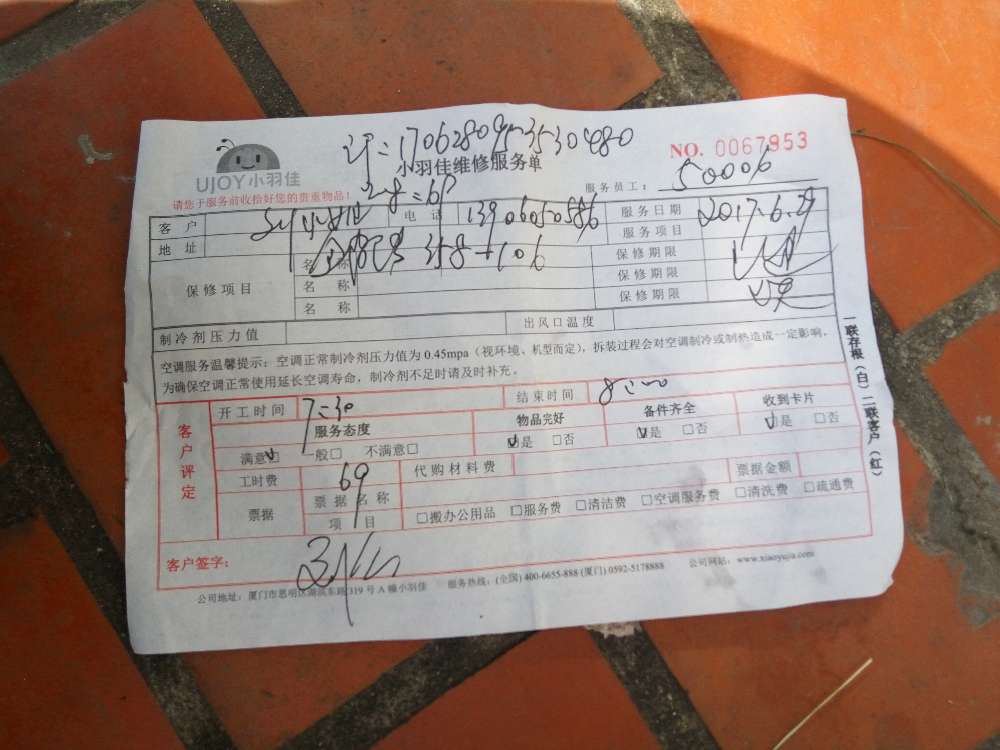 170628095353 0480
NO. 0067953
UJOY小羽佳
小羽佳维修服务单
请您于服务前收拾好您的贵重物品!
服务员工: 50006
客 户 电 话 13906050586 服务日期 2017.6.29
地 址 358-106 服务项目
保修项目 名 称 保修期限
名 称 保修期限
名 称 保修期限
制冷剂压力值 出风口温度
空调服务温馨提示: 空调正常制冷剂压力值为 0.45mpa (视环境、机型而定), 拆装过程会对空调制冷或制热造成一定影响,
为确保空调正常使用延长空调寿命, 制冷剂不足时请及时补充。
一联存根(白)二联客户(红)
客户评定
开工时间 7:30 结束时间 8:00
服务态度 物品完好 备件齐全 收到卡片
满意□ 一般□ 不满意□ □是 □否 □是 □否 □是 □否
工时费 69 代购材料费 票据金额
票据 票据名称
项 目 □搬办公用品 □服务费 □清洁费 □空调服务费 □清洗费 □疏通费
客户签字:
公司地址: 厦门市思明区湖滨东路 319 号 A 幢小羽佳 服务热线: (全国) 400-6655-888 (厦门) 0592-5178888 公司网站: www.xiaoyujia.com